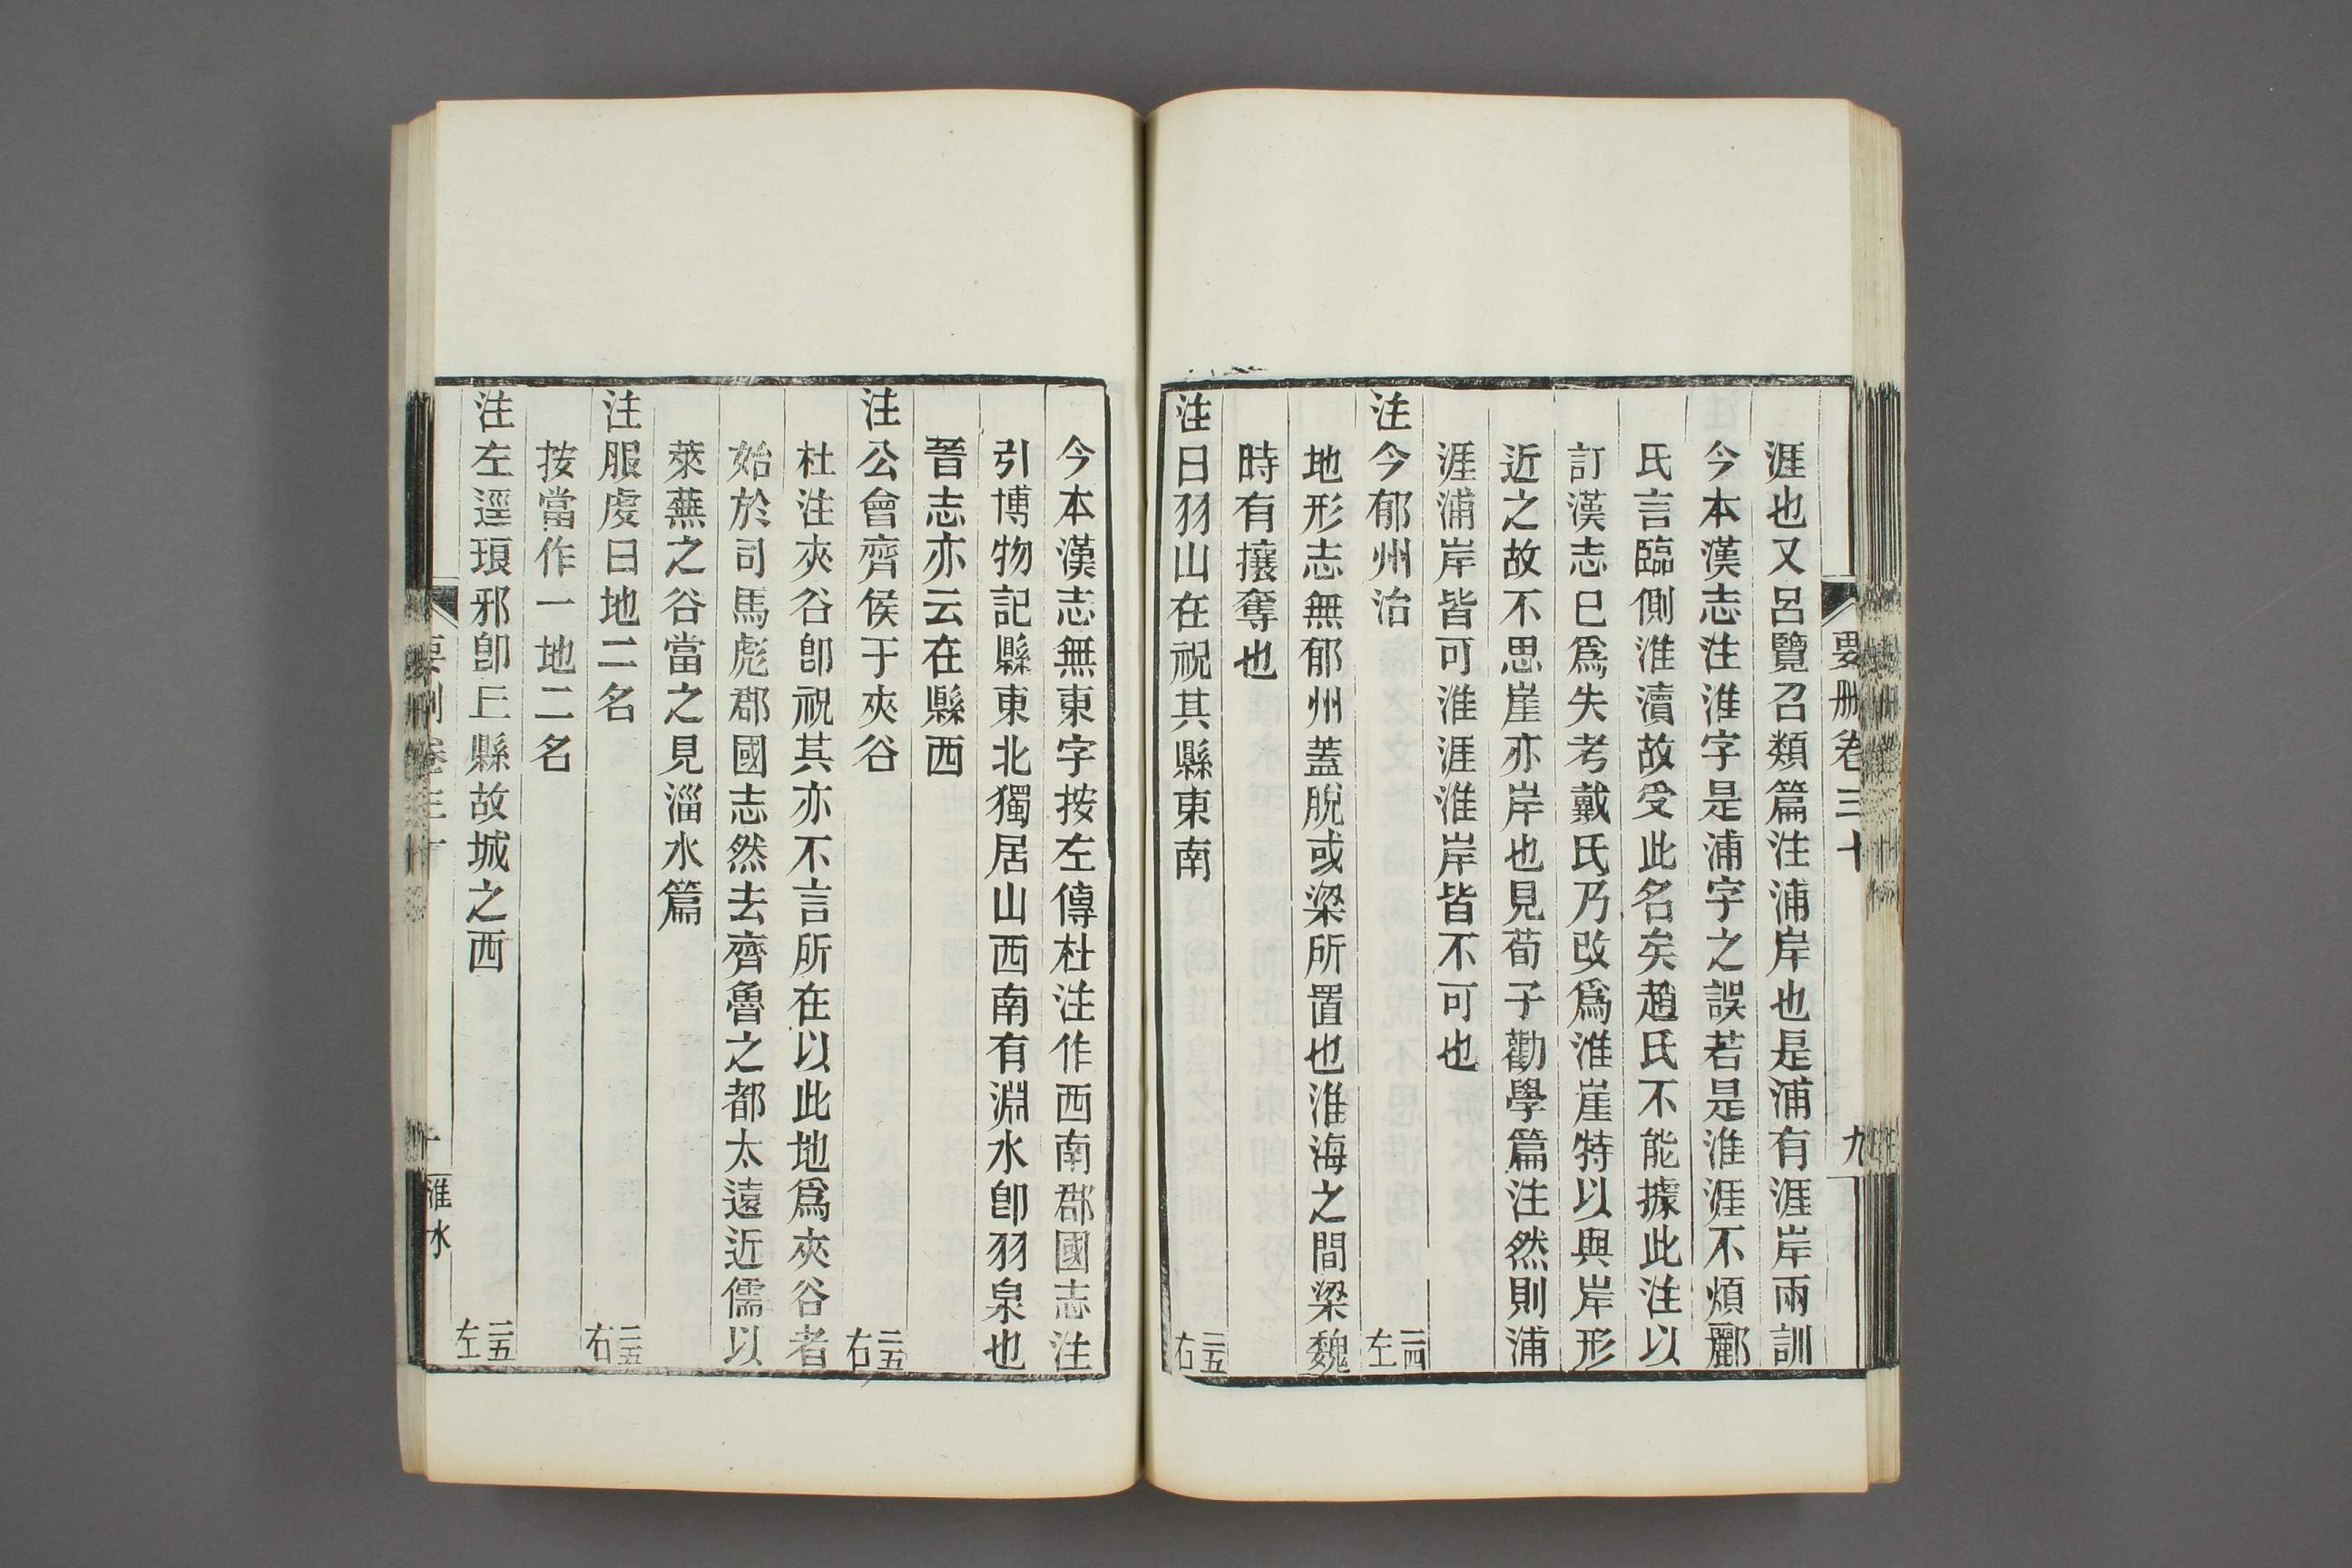 要刪卷三十
九
涯也又呂覽召類篇注浦岸也是浦有涯岸兩訓
今本漢志注淮字是浦字之誤若是淮涯不煩酈
氏言臨側淮瀆故受此名矣趙氏不能據此注以
訂漢志已爲失考戴氏乃改爲淮崖特以與岸形
近之故不思崖亦岸也見荀子勸學篇注然則浦
涯浦岸皆可淮涯淮岸皆不可也
注今郁州治 二四左
地形志無郁州蓋脫或梁所置也淮海之間梁魏
時有攘奪也
注曰羽山在祝其縣東南 二五右
今本漢志無東字按左傳杜注作西南郡國志注
引博物記縣東北獨居山西南有淵水卽羽泉也
晉志亦云在縣西
注公會齊侯于夾谷 二五右
杜注夾谷卽祝其亦不言所在以此地爲夾谷者
始於司馬彪郡國志然去齊魯之都太遠近儒以
萊蕪之谷當之見淄水篇
注服虔曰地二名 二五右
按當作一地二名
注左逕琅邪卽丘縣故城之西 二五左
要刪卷三十
十
淮水